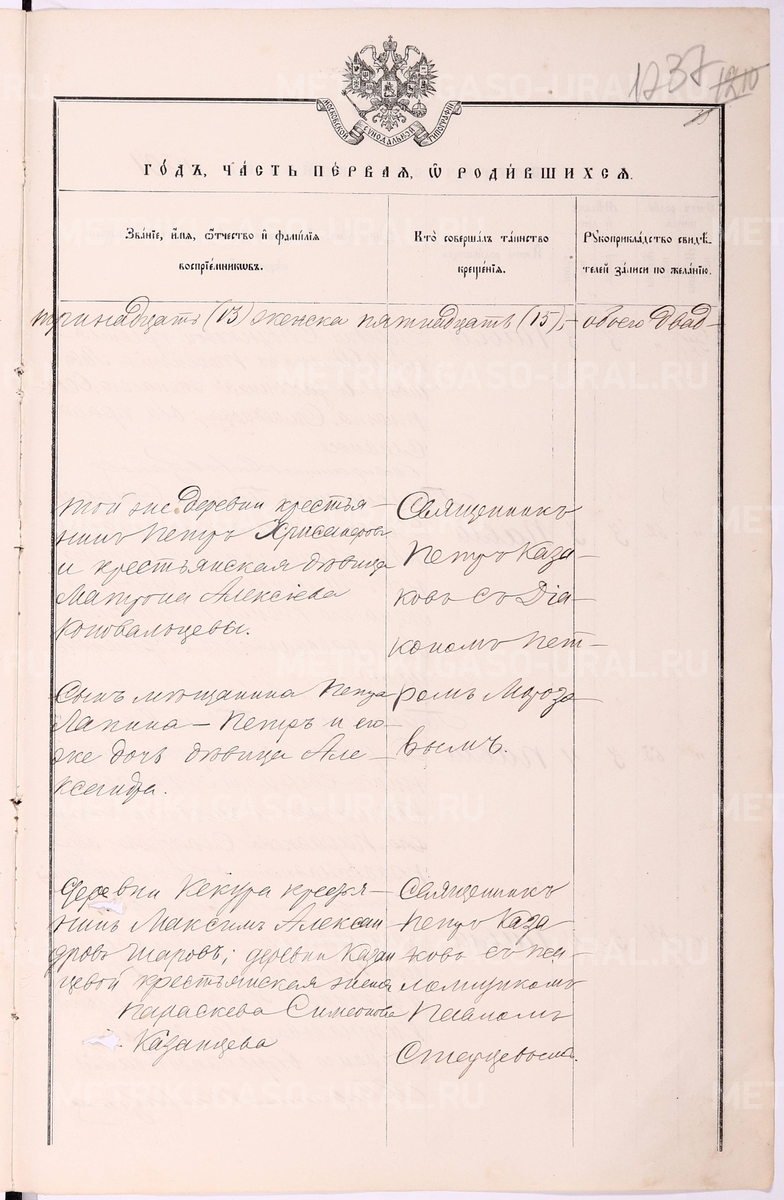 1237 1210
МОСКОВСКОЙ СѴНОДАЛЬНОЙ ТИПОГРАФІИ
ГО́ДЪ, ЧА́СТЬ ПЕ́РВАЯ, Ѡ҆ РОДИ́ВШИХСЯ.
Зва́нїе, и҆́мя, ѻ҆́тчество и҆ фами́лїя
воспрїе́мниковъ.
Кто̀ соверша́лъ та́инство
креще́нїя.
Рꙋкоприкла́дство свидѣ́-
телей за́писи по жела́нїю.
тринадцать (13) женска пятнадцать (15),- обоего двад-
той же деревни крестья-
нинъ Петръ Хрисанфовъ
и крестьянская дѣвица
Матрона Алексіева
Коновальцевы.
Священникъ
Петръ Каза-
ковъ съ Діа-
кономъ Пет-
ромъ Мороза-
вымъ.
Сынъ мѣщанина Петра
Лапина - Петръ и его-
же дочь дѣвица Але-
ксандра.
Деревни Кекура крестья-
нинъ Максимъ Алексан
дровъ Шаровъ; деревни Казан
цевой крестьянская жена
Параскева Симеонова
Казанцева
Священникъ
Петръ Каза
ковъ съ пса-
ломщикомъ
Павломъ
METRIKI.GASO-URAL.RU